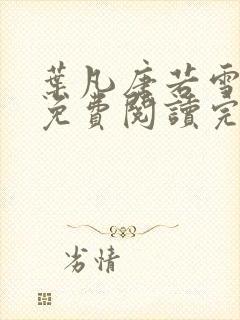 葉凡唐若雪
免費閱讀完
劣情